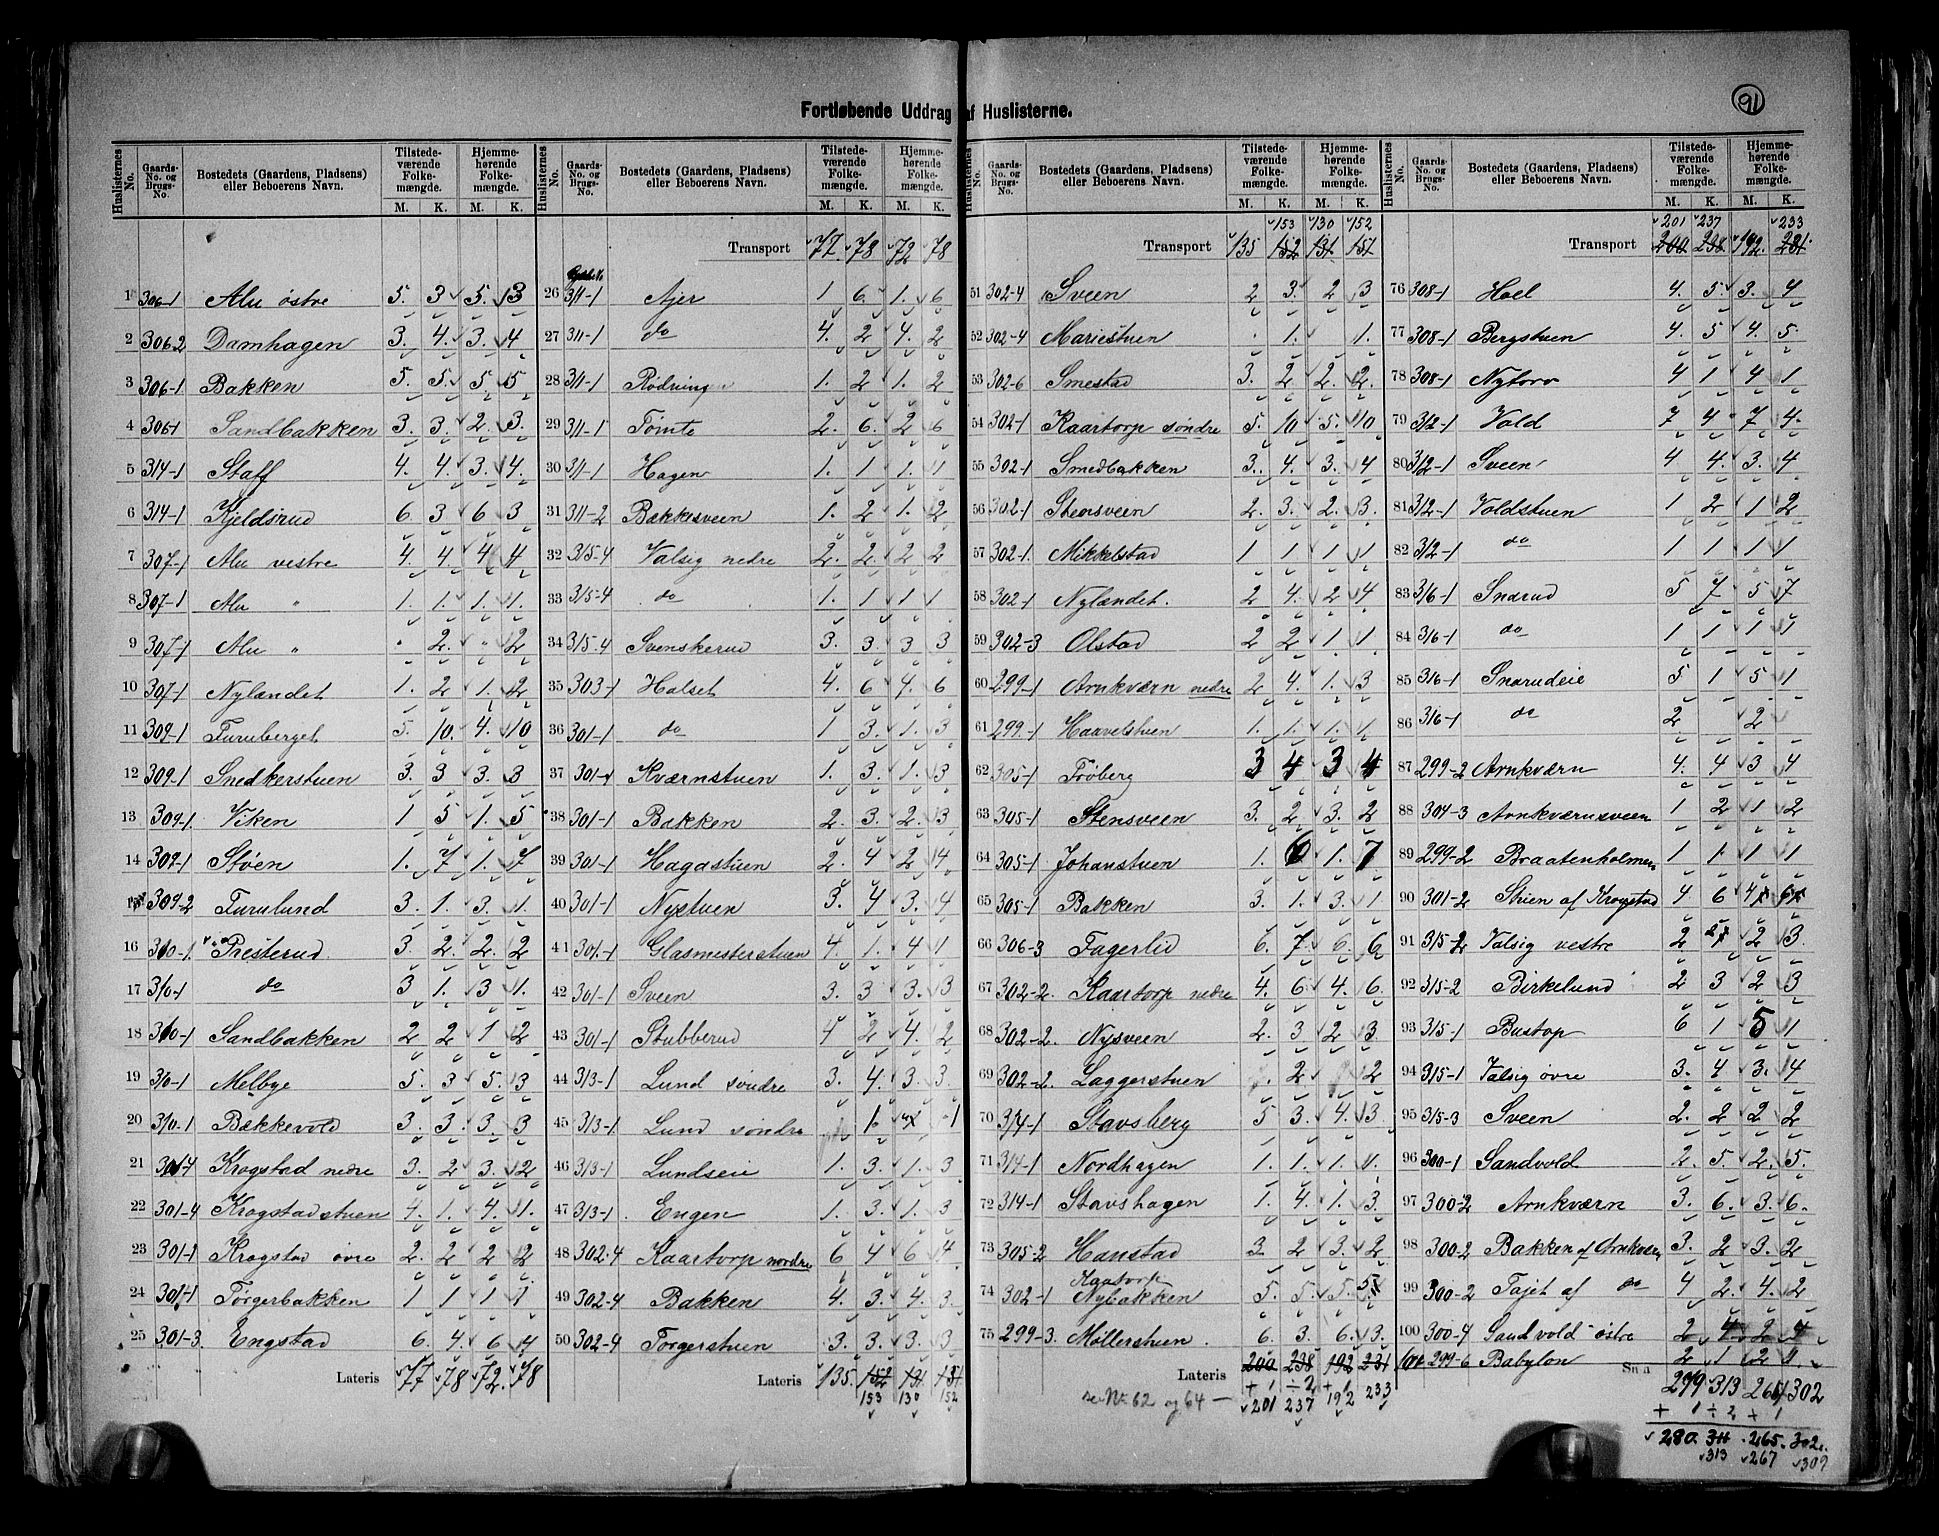 91
Fortløbende Uddrag af Huslisterne.
Huslisternes No. Gaards-No. og Brugs-No. Bostedets (Gaardens, Pladsens) eller Beboerens Navn. Tilstedeværende Folkemængde. M. K. Hjemmehørende Folkemængde. M. K.
1 306-1 Alu østre 5. 3 5. 3
2 306-2 Damhagen 3. 4. 3. 4
3 306-1 Bakken 5. 5. 5. 5
4 306-1 Sandbakken 3. 3. 2. 3.
5 314-1 Staff 4. 4. 3. 4.
6 314-1 Kjeldsrud 6 3 6 3
7 307-1 Alu vestre 4. 4. 4 4
8 307-1 Alu " 1. 1. 1. 1.
9 307-1 Alu " " 2. " 2
10 307-1 Nylændet 1. 2 1. 2
11 309-1 Furuberget 5. 10. 4. 10
12 309-1 Snedkerstuen 3. 3 3. 3
13 309-1. Viken 1 5 1. 5
14 309-1 Støen 1. 7 1. 7
309-2 Furulund 3. 1. 3. 1.
16 310-1. Presterud. 3 2. 2. 2
17 310-1 do 3 1. 3 1.
18 310-1 Sandbakken 2 2 1 2
19 310-1 Melbye 5. 3 5. 3
20 310-1 Bækkevold 3. 3. 3. 3
21 301-4 Krogstad nedre 3. 2 3. 2
22 301-4 Krogstadstuen 4. 1. 4. 1.
23 301-1 Krogstad øvre 2. 2 2 2
24 301-1 Torgerbakken 1 1 1 1
25 301-3. Engstad 6. 4. 6 4
Lateris 77 78 72. 78
Transport 77. 78 72 78
26 311-1 Ajer 1 6. 1. 6
27 311-1 do 4. 2 4. 2
28 311-1 Rødningen 1. 2 1. 2
29 311-1 Tomte 2. 6. 2 6
30 311-1 Hagen 1. 1 1. 1
31 311-2 Bækkesveen 1. 2 1. 2
32 315-4 Valsig nedre 2. 2. 2 2
33 315-4 do 1. 1 1 1
34 315.4 Svenskerud 3. 3. 3 3
35 303-1 Halset 4. 6 4. 6
36 301-1 do 1 3. 1. 3
37 301-1 Kværnstuen 1. 3. 1. 3
38 301-1 Bakken 2. 3. 2. 3
39 301-1 Hagastuen 2. 4 2 4
40 301-1 Nystuen 3. 4 3. 4
41 301-1 Glasmesterstuen 4. 1. 4 1
42 301-1 Sveen 3. 3 3. 3
43 301-1 Stubberud 4 2 4. 2
44 313-1 Lund søndre 3. 4. 3. 3.
45 313-1 Lund søndre 1. 1
46 313-1 Lundseie 1. 3. 1. 3
47 313-1. Engen 1. 3. 1. 3
48 302.4 Kaartorp nordre 6 4 6 4
49 302-4 Bakken 4. 3. 4. 3.
50 302-4 Torgerstuen 3. 3. 3. 3
Lateris 135. 152 131 151
153 130 152
153 130 152
Transport 135 152 131 151
51 302-4 Sveen 2 3. 2 3
52 302-4 Mariestuen . 1. 1.
53 302-6 Smestad 3. 2 2. 2.
54 302-1 Kaartorp søndre 5. 10 5. 10
55 302-1 Smedbakken 3. 4. 3. 4
56 302-1 Stensveen 2. 3. 2. 3.
57 302-1. Mikkelstad 1 1 1 1
58 302-1 Nylændet. 2 4. 2 4
59 302-3 Olstad 2 2 1 1
60 299-1 Arnkværn nedre 2 4. 1. 3
61 299-1 Haavelstuen 1. 1. 1. 1
62 305-1 Frøberg 3 4 3 4
63 305-1 Stensveen 3. 2 3. 2
64 305-1 Johanstuen 1. 6 1. 7
65 305-1 Bakken 3. 1. 3 1
66 306-3 Fagerlid 6. 7. 6. 6
67 302-2. Kaartorp nedre 4. 6 4. 6.
68 302-2. Nysveen 2. 3 2 3.
69 302-2. Laggerstuen 2 2
70 314-1 Stavsberg 5 3. 4. 3
71 314-1 Nordhagen 1. 1. 1. 1.
72 314-1 Stavshagen 1. 4. 1. 3.
73 305-2 Hanstad 3. 2 3. 2
74 302-1 Kaatorp Nybakken 5. 5. 5. 5
75 299-3. Møllerstuen. 6. 3. 6. 3.
Lateris 200 238 192 231
se No 62 og 64 — + 1 ÷ 2 + 1 233
201 237 192
201 237 233
Transport 200 238 192. 231.
76 308-1 Hoel 4. 5. 3. 4
77 308-1 Bergstuen 4. 5 4. 5
78 308-1 Nytoro 4 1 4 1
79 312-1 Vold 7 4 7 4.
80 312-1 Sveen 4 4. 3. 4
81 312-1 Voldstuen 1 2 1 2
82 312-1 do 1 1 1 1
83 316-1 Snarud 5 7 5 7
84 316-1 do 1 1 1 1
85 316-1 Snarudeie 5 1 5 1
86 316-1 do 2 2
87 299-2 Arnkværn 4. 4 3 4
88 304-3 Arnkværnsveen 1 2 1 2
89 299-2 Braatenholmen 1 1. 1 1
90 301-2 Stuen af Krogstad 4 6 4 6
91 315-2 Valsig vestre 2 2 3.
92 315-2 Birkelund 2 3 2 3
93 315-1 Bustop 6 1 5 1
94 315-1 Valsig øvre 3. 4 3. 4
95 315-3 Sveen 2. 2 2 2
96 300-1 Sandvold 2. 5. 2. 5.
97 300-2 Arnkværn 3. 6. 3. 6.
98 300-2 Bakken af Arnkværn 3. 2 3. 2
99 300-2 Tajet af do 4 2. 4. 2
100 300-4 Sandvold østre 2 4 2 4
299-6 Babylon 2 1 2 1.
Sum 279 313 264 302
+ 1 ÷ 2 + 1
280. 311 265. 302.
313 267 309